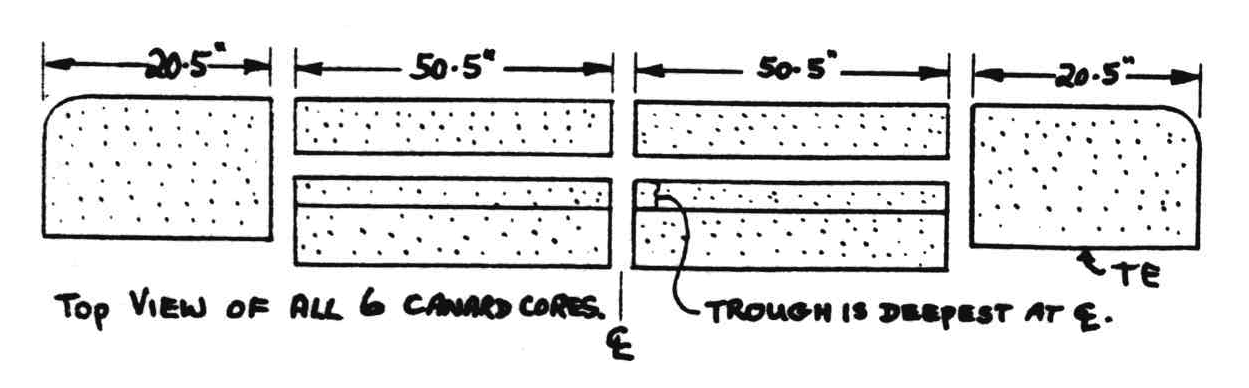 20.5" 50.5" 50.5" 20.5"
TE
TOP VIEW OF ALL 6 CANARD CORES. TROUGH IS DEEPEST AT ℄.
℄